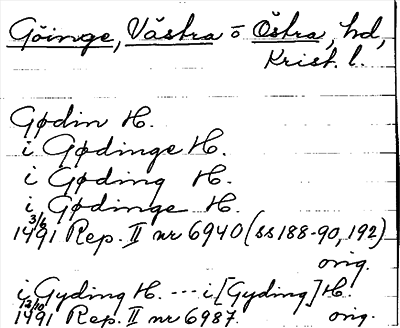 Göinge, Västra o Östra, hd,
Krist. l.
Gødin H.
i Gødinge H.
i Gøding H.
i Gødinge H.
3/6 1491 Rep. II nr 6940 (ss 188-90, 192)
orig.
i Gyding H. --- i [Gyding] H.
12/10 1491 Rep. II nr 6987. orig.